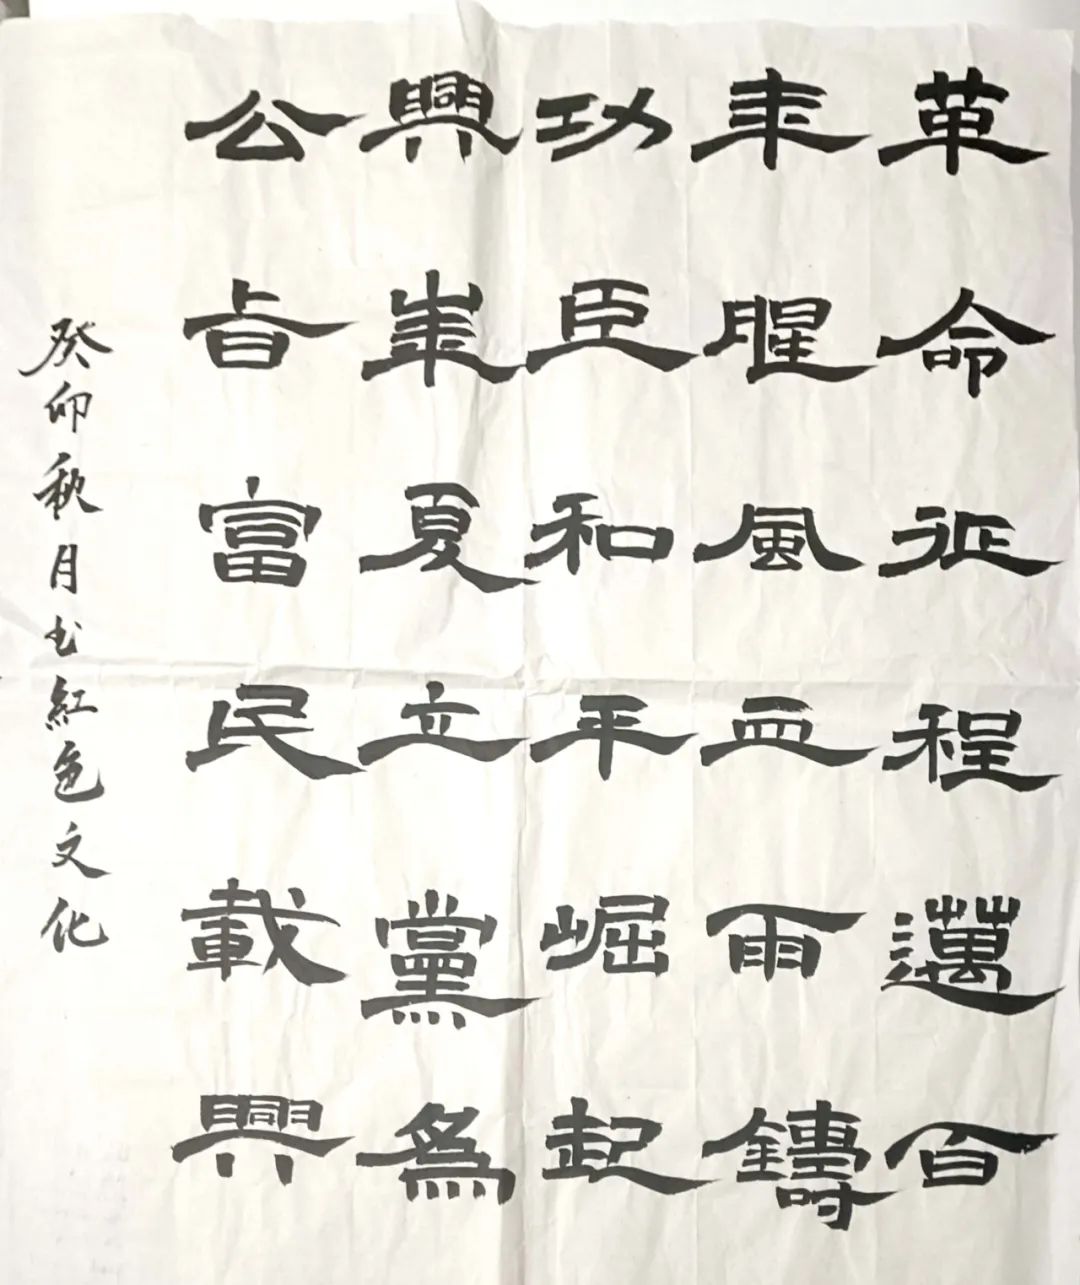 革命征程邁百
年腥風血雨鑄
功臣和平崛起
興華夏立黨為
公旨富民載興
癸卯秋月书紅色文化